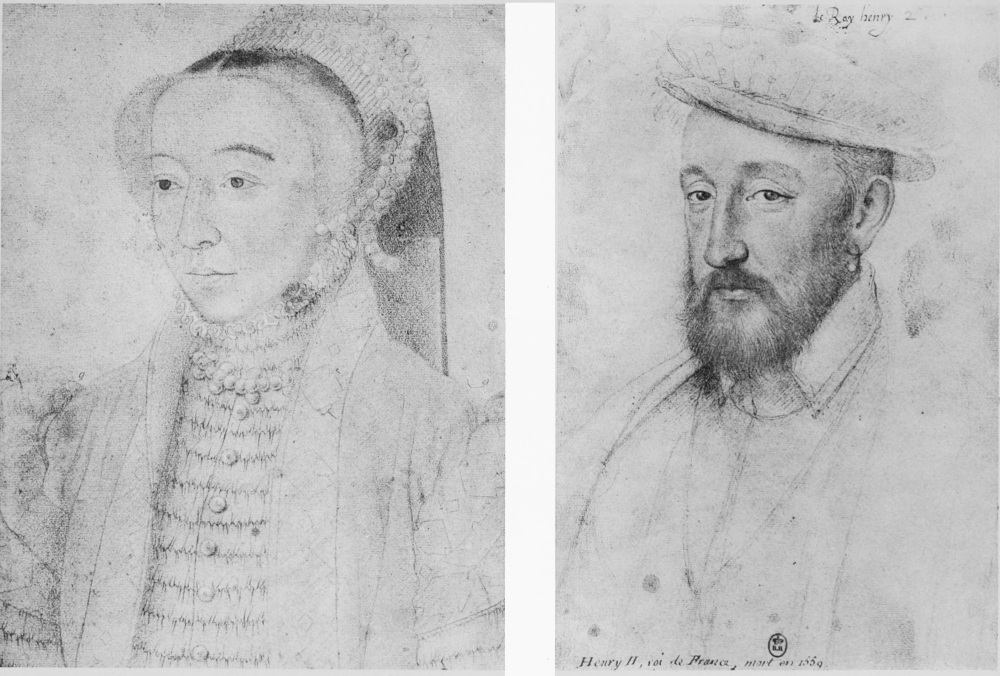 le Roy henry 2
Henry II, roi de France, mort en 1559